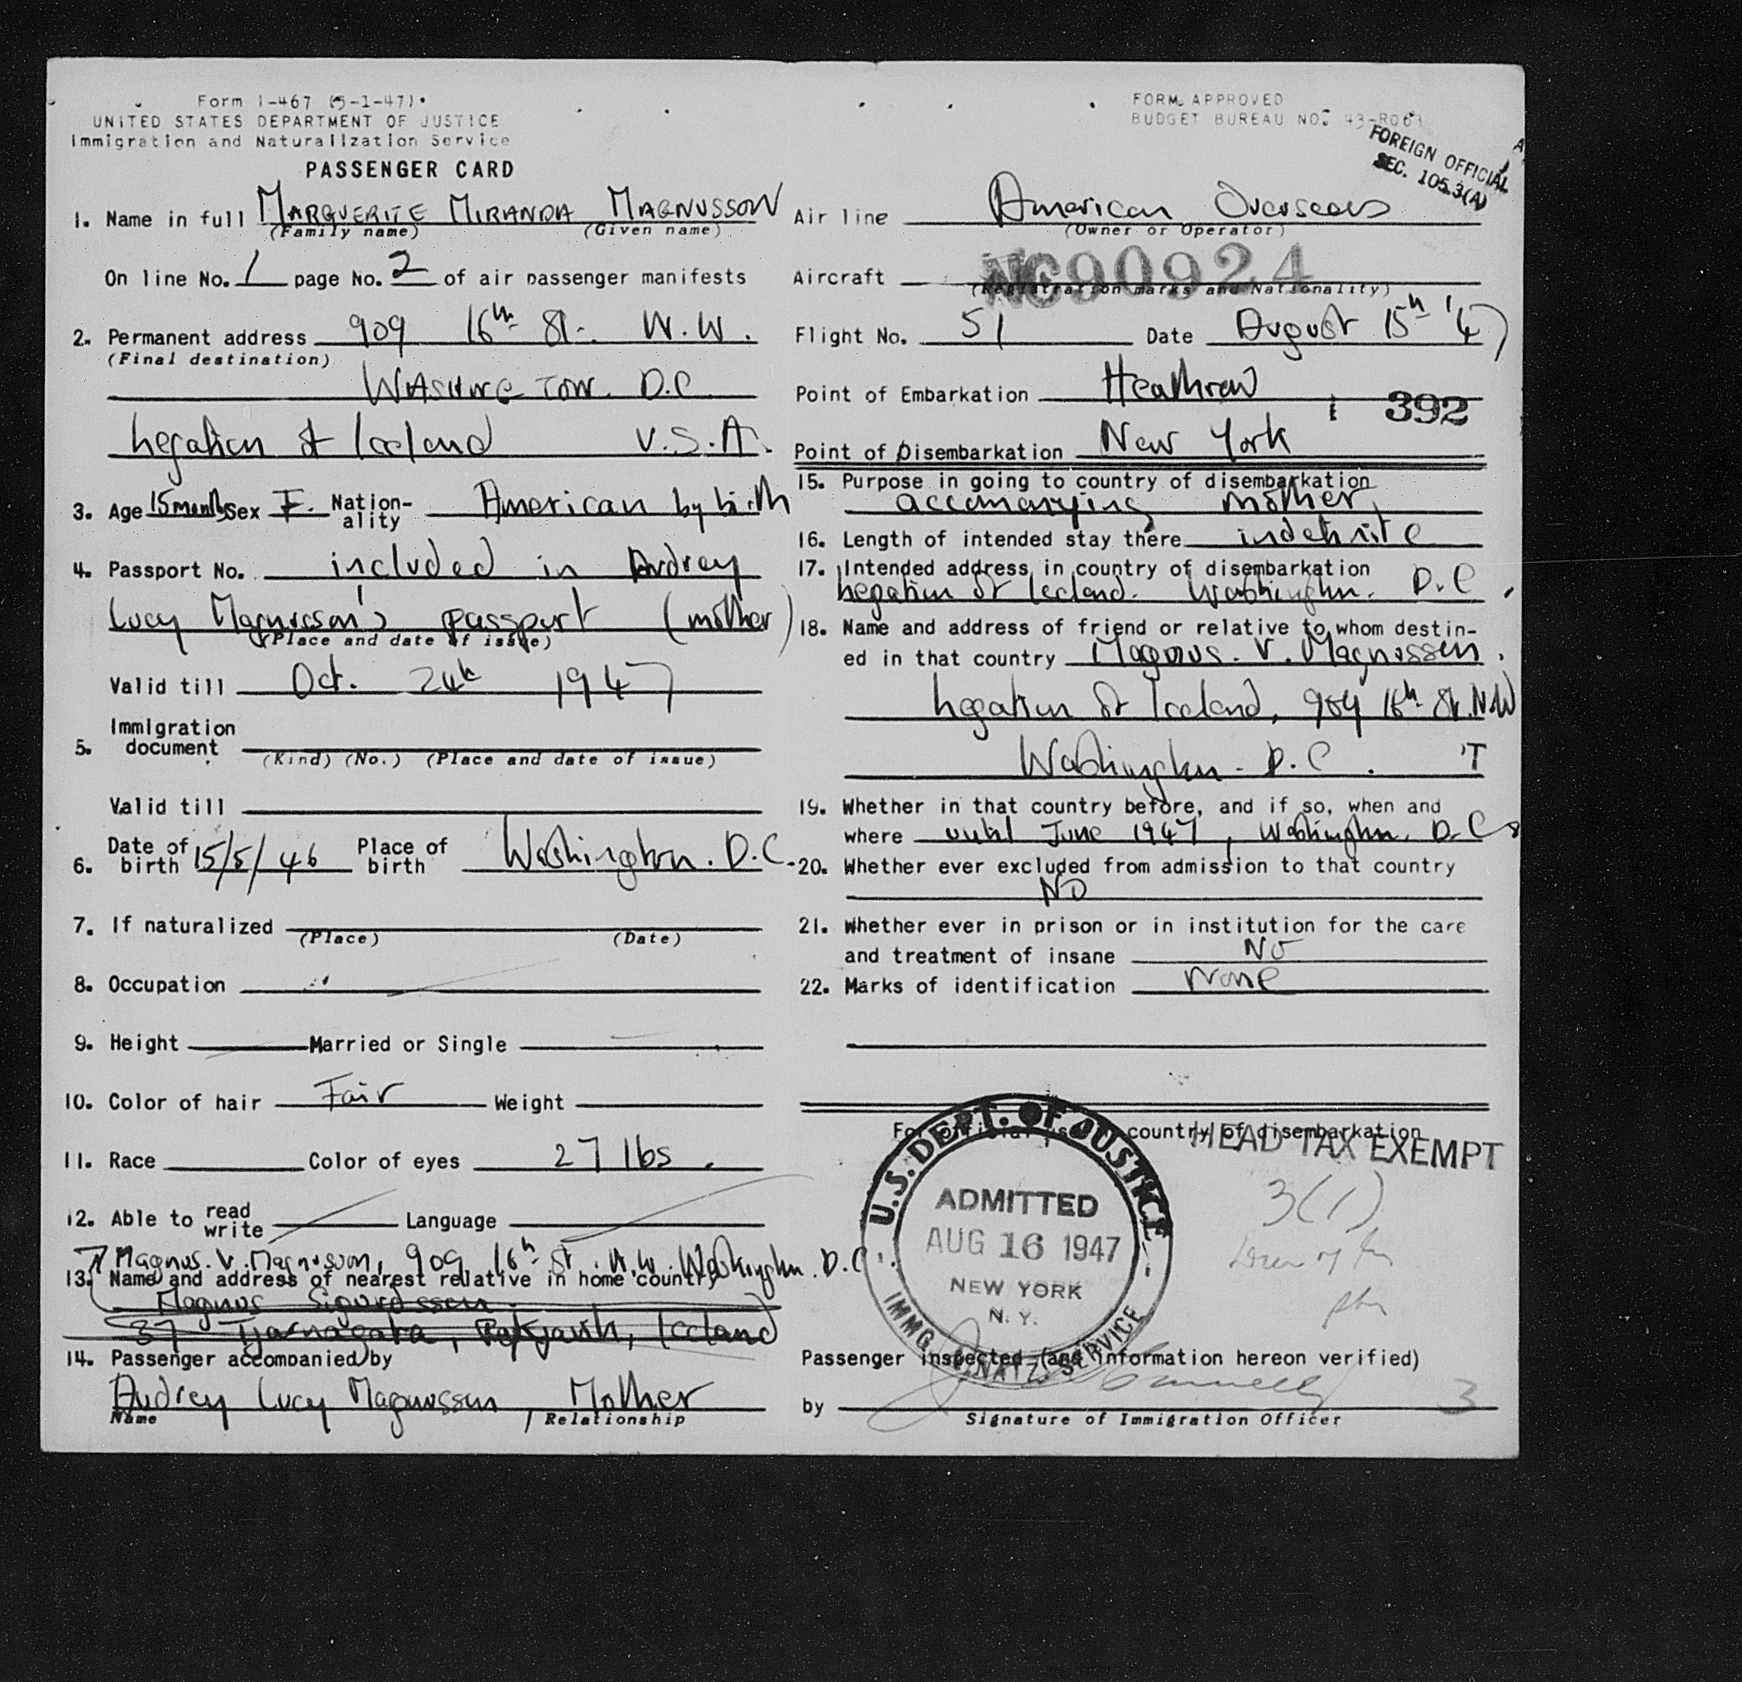 Form I-467 (5-1-47)
UNITED STATES DEPARTMENT OF JUSTICE
Immigration and Naturalization Service
PASSENGER CARD
1. Name in full MARGUERITE MIRANDA MAGNUSSON
(Family name) (Given name)
On line No. 1 page No. 2 of air passenger manifests
2. Permanent address 909 16th St. N.W.
(Final destination)
WASHINGTON. D.C.
Legation of Iceland U.S.A.
3. Age 15 months Sex F. Nation-
ality American by birth
4. Passport No. included in Audrey
Lucy Magnusson's passport (mother)
(Place and date of issue)
Valid till Oct. 24th 1947
5. Immigration
document
(Kind) (No.) (Place and date of issue)
Valid till
6. Date of
birth 15/5/46 Place of
birth Washington. D.C.
7. If naturalized
(Place) (Date)
8. Occupation
9. Height Married or Single
10. Color of hair Fair Weight
11. Race Color of eyes 27 lbs.
12. Able to read
write Language
Magnus. V. Magnusson, 909 16th St. N.W. Washington. D.C.
13. Name and address of nearest relative in home country
Magnus Sigurdsson
37 Tjarnagata, Reykjavik, Iceland
14. Passenger accompanied by
Audrey Lucy Magnusson, Mother
Name Relationship
FORM APPROVED
BUDGET BUREAU NO. 43-R061
FOREIGN OFFICIAL
SEC. 105.3(A)
Air line American Overseas
(Owner or Operator)
Aircraft NC90924
(Registration marks and Nationality)
Flight No. 51 Date August 15th '47
Point of Embarkation Heathrow
392
Point of Disembarkation New York
15. Purpose in going to country of disembarkation
accomanying mother,
16. Length of intended stay there indefinite
17. Intended address in country of disembarkation
Legation of Iceland. Washington. D.C.
18. Name and address of friend or relative to whom destin-
ed in that country Magnus. V. Magnusson.
Legation of Iceland, 909 16th St. N.W
Washington. D.C. 'T
19. Whether in that country before, and if so, when and
where until June 1947, Washington. D.C.
20. Whether ever excluded from admission to that country
NO
21. Whether ever in prison or in institution for the care
and treatment of insane NO
22. Marks of identification None
For official use in country of disembarkation
HEAD TAX EXEMPT
3(1)
U.S. DEPT. OF JUSTICE
ADMITTED
AUG 16 1947
NEW YORK
N.Y.
IMMG. & NATZ. SERVICE
Passenger inspected (and information hereon verified)
by 3
Signature of Immigration Officer